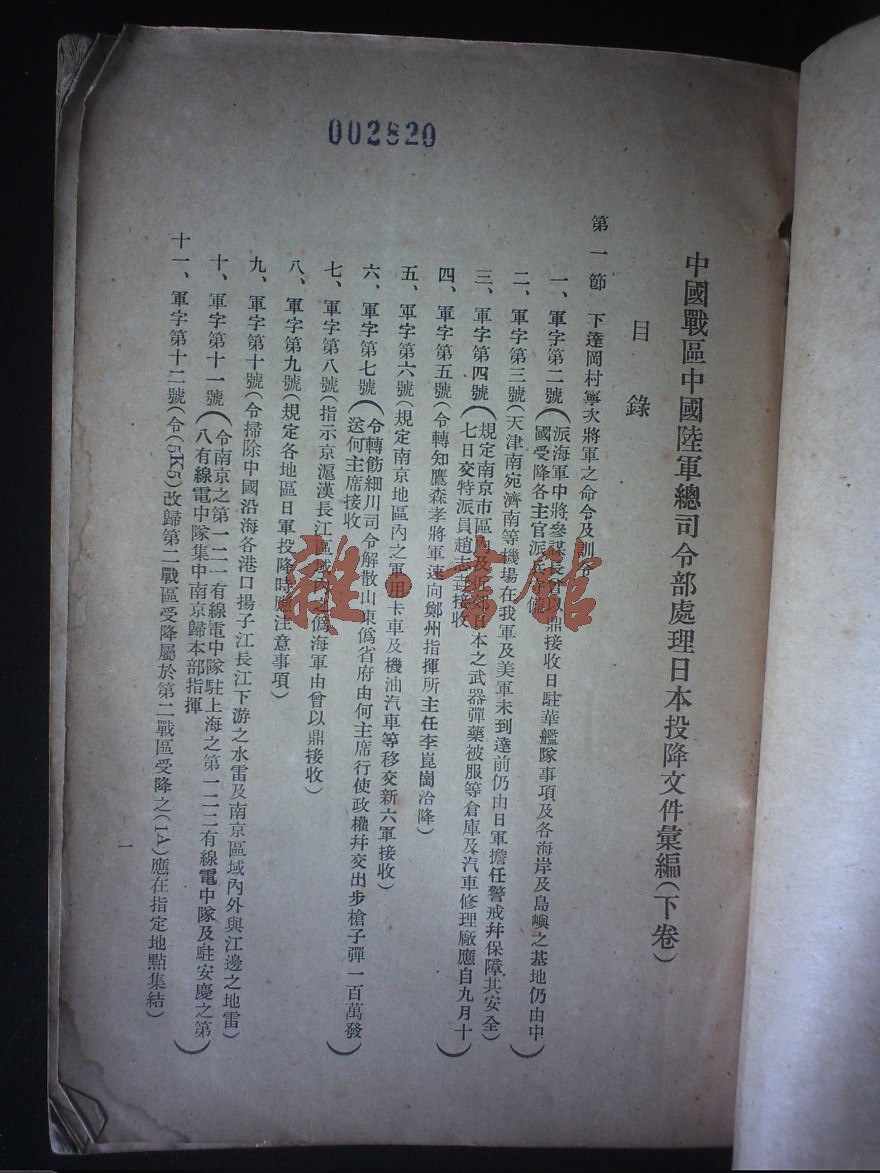 002820
中國戰區中國陸軍總司令部處理日本投降文件彙編(下卷)
目錄
第一節 下達岡村寧次將軍之命令及訓
一、軍字第二號(派海軍中將參謀長曾以鼎接收日駐華艦隊事項及各海岸及島嶼之基地仍由中
國受降各主官派)
二、軍字第三號(天津南宛濟南等機場在我軍及美軍未到達前仍由日軍擔任警戒幷保障其安全)
三、軍字第四號(規定南京市區內及近郊日本之武器彈藥被服等倉庫及汽車修理廠應自九月十
七日交特派員趙志垚接收)
四、軍字第五號(令轉知鷹森孝將軍速向鄭州指揮所主任李崑崗洽降)
五、軍字第六號(規定南京地區內之軍用卡車及機油汽車等移交新六軍接收)
六、軍字第七號(令轉飭細川司令解散山東僞省府由何主席行使政權幷交出步槍子彈一百萬發
送何主席接收)
七、軍字第八號(指示京滬漢長江區域內之僞海軍由曾以鼎接收)
八、軍字第九號(規定各地區日軍投降時應注意事項)
九、軍字第十號(令掃除中國沿海各港口揚子江長江下游之水雷及南京區域內外與江邊之地雷)
十、軍字第十一號(令南京之第一二一有線電中隊駐上海之第一二二有線電中隊及駐安慶之第
八有線電中隊集中南京歸本部指揮)
十一、軍字第十二號(令(5K5)改歸第二戰區受降屬於第二戰區受降之(1A)應在指定地點集結)
一
雜·書館